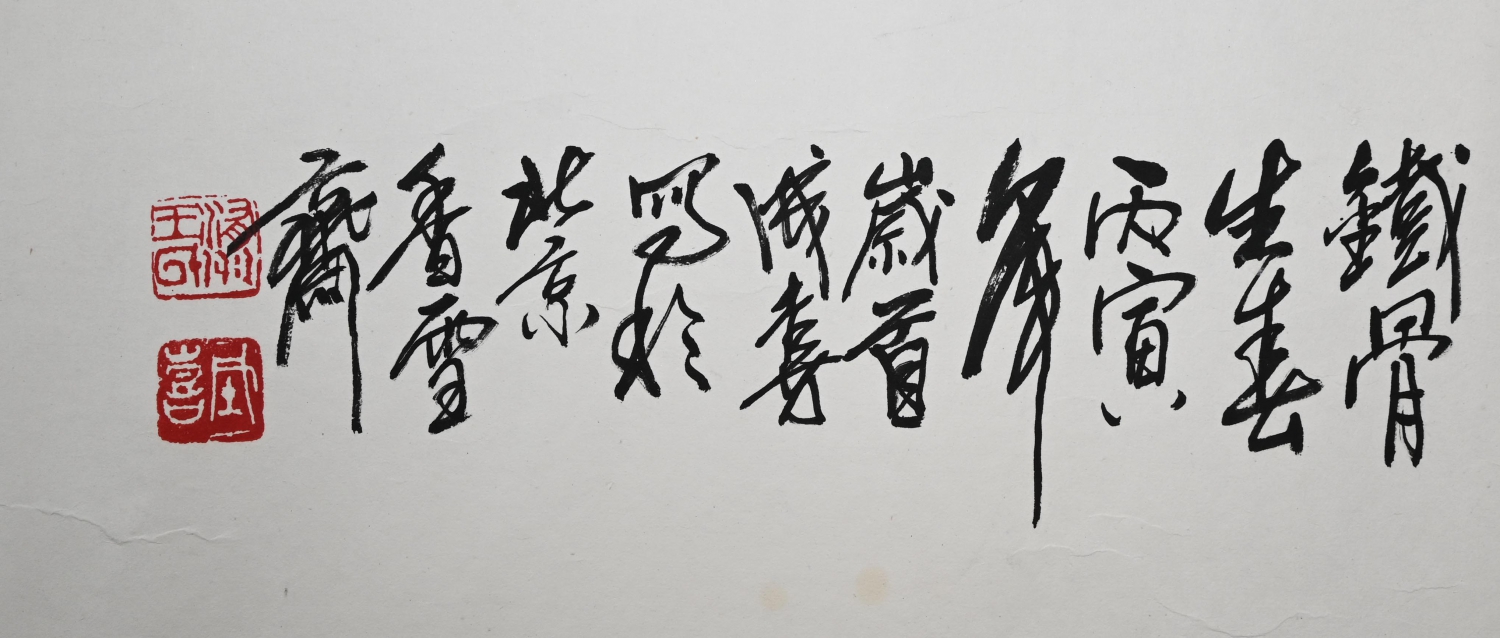 鐵骨
生春
丙寅
年
歲首
成喜
寫於
北京
香雪
齋
成喜